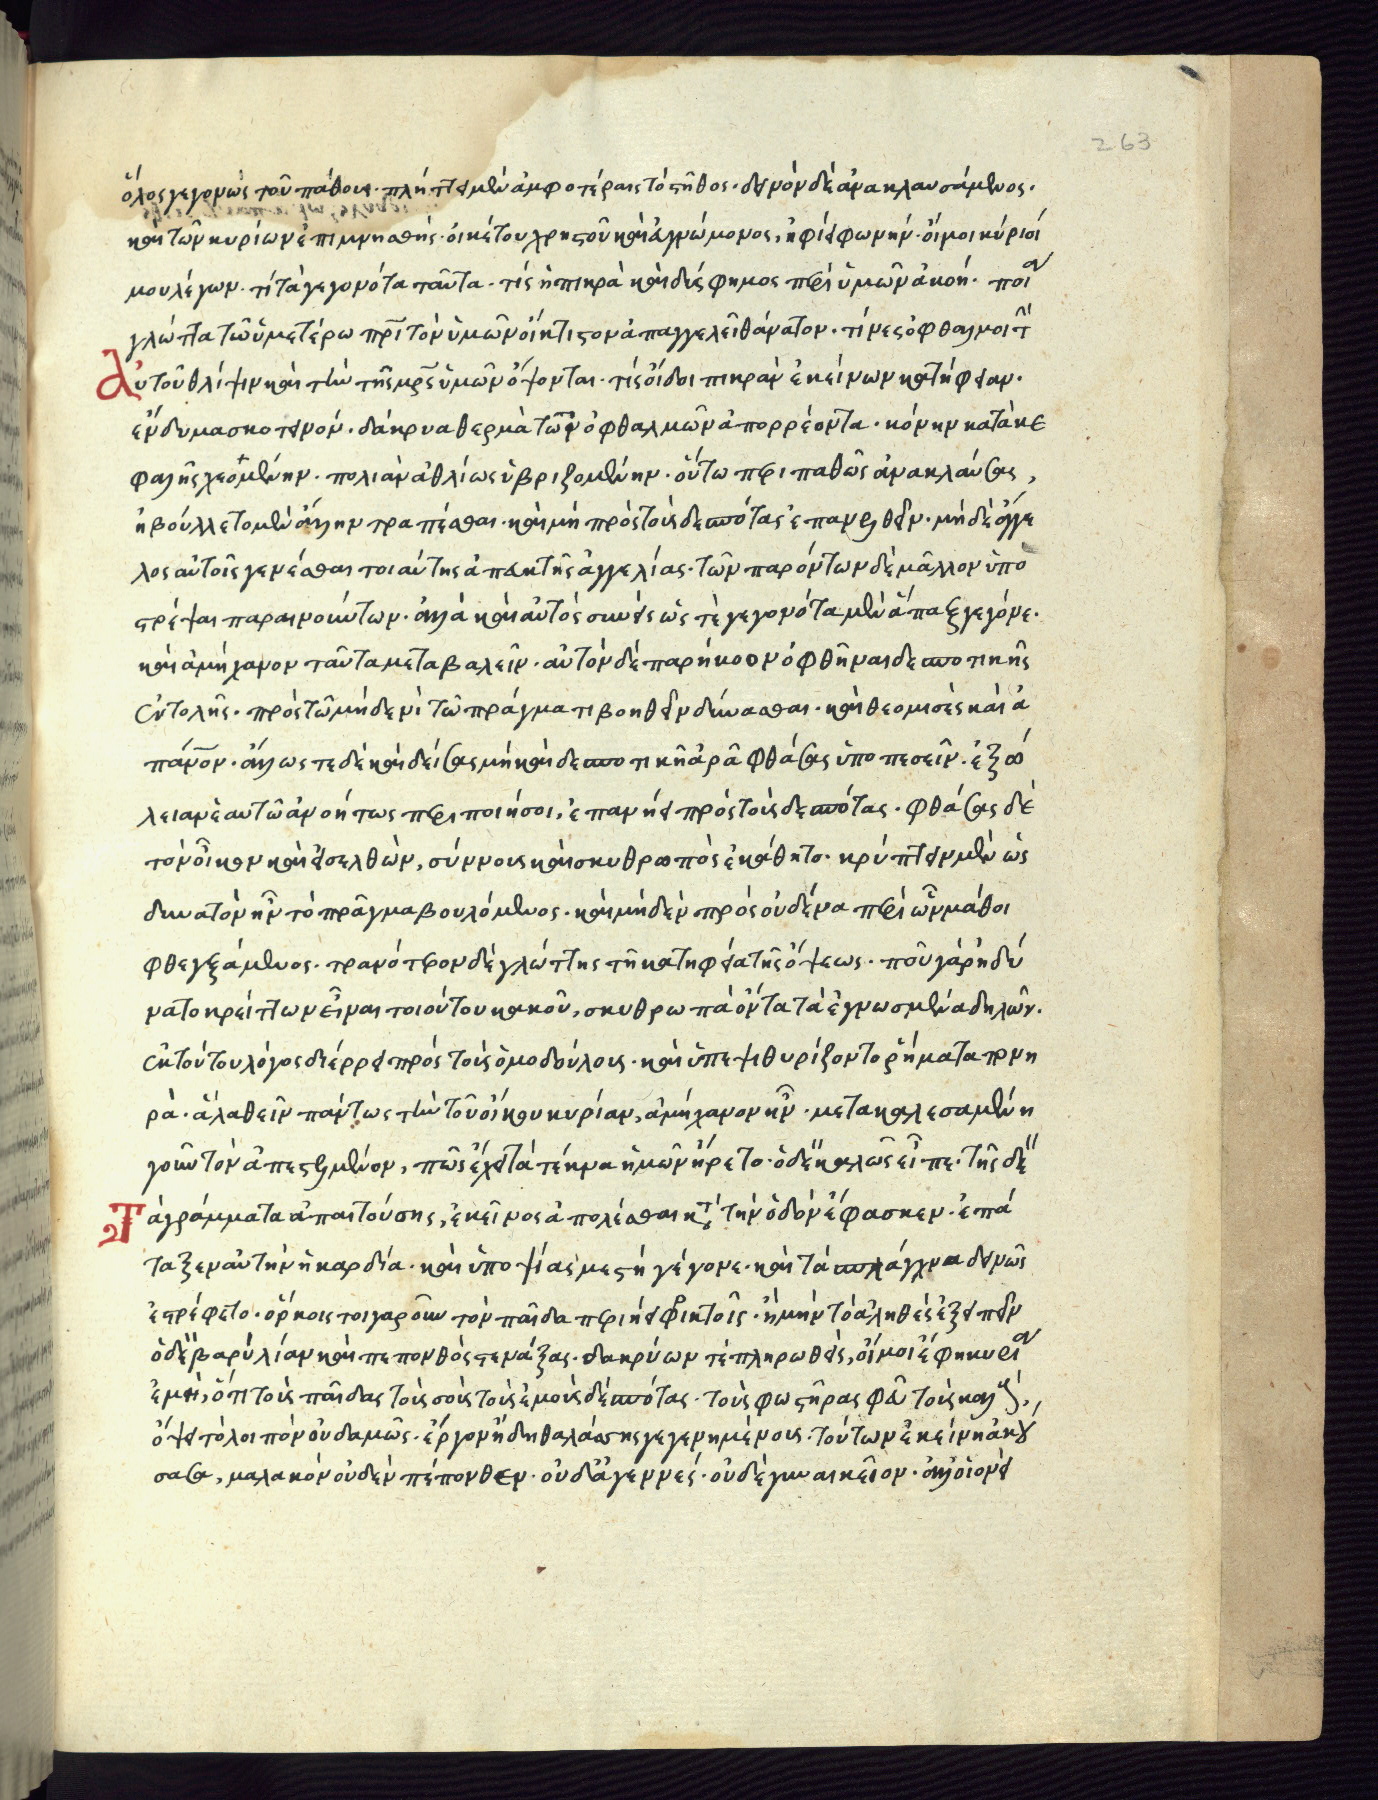 263
ὅλος γεγονὼς τοῦ πάθους· πλήττει μὲν ἀμφοτέραις τὸ στῆθος· δεινὸν δὲ ἀνακλαυσάμενος·
καὶ τῶν κυρίων ἐπιμνησθεὶς· οἰκέτου χρηστοῦ καὶ εὐγνώμονος, ἠφίει φωνήν· οἴμοι κύριοί
μου λέγων· τί τὰ γεγονότα ταῦτα· τίς ἡ πικρὰ καὶ δύσφημος περὶ ὑμῶν ἀκοή· ποία
γλῶττα τῶ ὑμετέρω πρὶ τὸν ὑμῶν οἴκτιστον ἀπαγγελεῖ θάνατον· τίνες ὀφθαλμοὶ τὴν
αὐτοῦ θλίψιν καὶ τὴν τῆς μρς ὑμῶν ὄψονται· τίς οἴσει πικρὰν ἐκείνων κατήφειαν·
ἔνδυμα σκοτεινόν· δάκρυα θερμὰ τῶν ὀφθαλμῶν ἀπορρέοντα· κόνιν κατὰ κε
φαλῆς χεομένην· πολιὰν ἀθλίως ὑβριζομένην· οὕτω περιπαθῶς ἀνακλαύσας,
ἠβούλλετο μὲν ἄλλην τραπέσθαι· καὶ μὴ πρὸς τοὺς δεσπότας ἐπανελθεῖν· μὴ δὲ ἄγγε
λος αὐτοῖς γενέσθαι τοιαύτης ἀπευκτῆς ἀγγελίας· τῶν παρόντων δὲ μᾶλλον ὑπο
στρέψαι παραινούντων· ἀλλὰ καὶ αὐτὸς συνεὶς ὡς τὲ γεγονότα μὲν ἅπαξ γεγόνε·
καὶ ἀμήχανον ταῦτα μεταβαλεῖν· αὐτὸν δὲ παρήκοον ὀφθῆναι δεσποτικῆς
ἐντολῆς· πρὸς τῶ μηδενὶ τῶ πράγματι βοηθεῖν δύνασθαι· καὶ θεομισὲς καὶ ἀ
πάνον· ἄλλως τε δὲ καὶ δείσας μὴ καὶ δεσποτικῆ ἀρᾶ φθάσας ὑποπεσεῖν· ἐξώ
λειαν ἑαυτῶ ἀνοήτως περιποιήσοι, ἐπανήει πρὸς τοὺς δεσπότας· φθάσας δὲ
τὸν οἶκον καὶ εἰσελθών, σύννους καὶ σκυθρωπὸς ἐκάθητο· κρύπτειν μὲν ὡς
δυνατὸν ἦν τὸ πρᾶγμα βουλόμενος· καὶ μηδὲν πρὸς οὐδένα περὶ ὧν μάθοι
φθεγξάμενος· τρανότερον δὲ γλώττης τῆ κατηφεία τῆς ὄψεως· ποῦ γὰρ ἠδύ
νατο κρείττων εἶναι τοιούτου κακοῦ, σκυθρωπὰ ὄντα τὰ ἐγνωσμένα δηλῶν.
ἐκ τούτου λόγος διέρρει πρὸς τοὺς ὁμοδούλους· καὶ ὑπεψιθυρίζοντο ῥήματα πονη
ρὰ· ἃ λαθεῖν πάντως τὴν τοῦ οἴκου κυρίαν, ἀμήχανον ἦν· μετακαλεσαμένη
γοῦν τὸν ἀπεσταλμένον, πῶς ἔχει τὰ τέκνα ἡμῶν ἤρετο· ὁ δὲ καλῶς εἶπε· τῆς δὲ
τὰ γράμματα ἀπαιτούσης, ἐκεῖνος ἀπολέσθαι κατὰ τὴν ὁδὸν ἔφασκεν· ἐπά
ταξεν αὐτὴν ἡ καρδία· καὶ ὑποψίας μεστὴ γέγονε· καὶ τὰ σπλάγχνα δεινῶς
ἐστρέφετο· ὅρκοις τοιγαροῦν τὸν παῖδα περιήει φρικτοῖς· ἦ μὴν τὸ ἀληθὲς ἐξειπεῖν
ὁ δὲ βαρὺ λίαν καὶ πεπονθὸς στενάξας· δακρύων τὲ πληρωθεὶς, οἴμοι ἔφη κυρία
ἐμὴ, ὅτι τοὺς παῖδας τοὺς σοὺς τοὺς ἐμοὺς δεσπότας· τοὺς φωστῆρας φεῦ τοὺς καλούς,
ὄψει τὸ λοιπὸν οὐδαμῶς· ἔργον ἤδη θαλάσσης γεγενημένους· τούτων ἐκείνη ἀκού
σασα, μαλακὸν οὐδὲν πέπονθεν· οὐδ' ἀγεννές· οὐδὲ γυναικεῖον· ἀλλ' οἱονεὶ